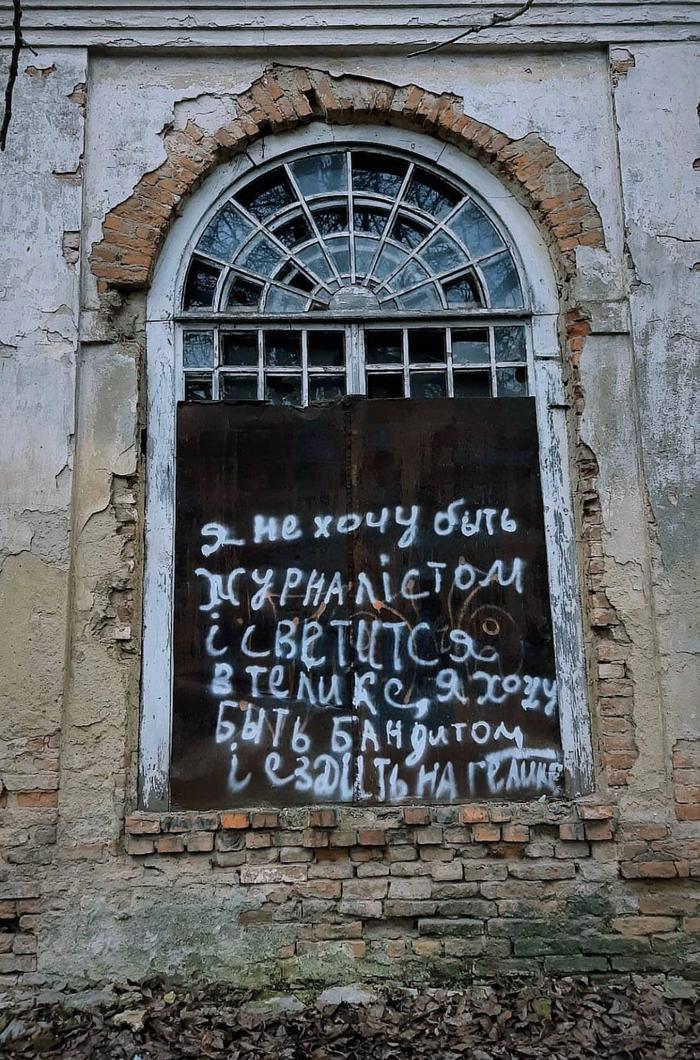 я не хочу быть
журналістом
і светитса
в телике, я хочу
быть бандитом
і ездить на гелике